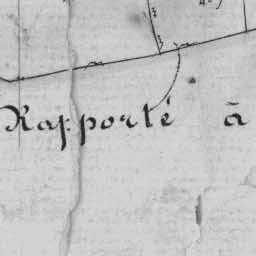 Rapporté à